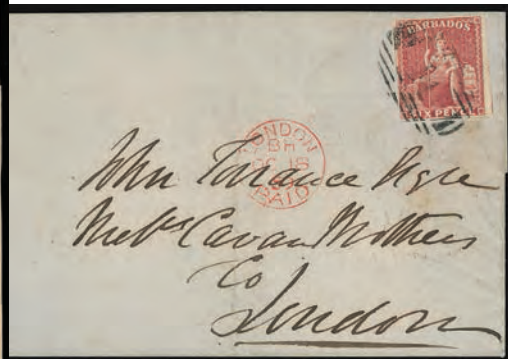 BARBADOS
SIX PENCE
LONDON
BH
OC 18
PAID
John Torrance Esqre
Messrs Cavan Brothers
Co
London